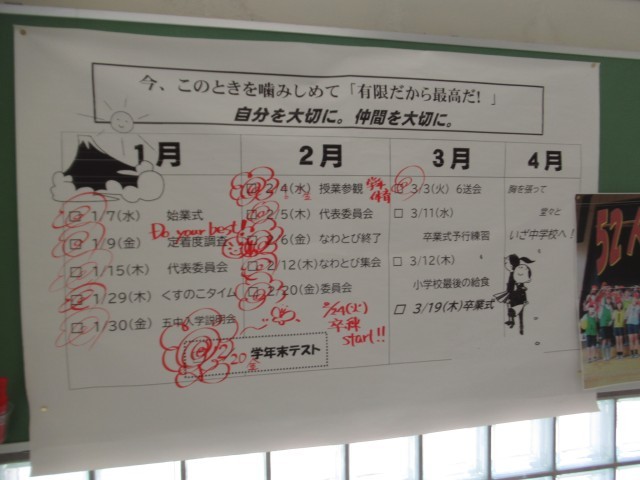 今、このときを噛みしめて「有限だから最高だ!」
自分を大切に。仲間を大切に。
1月
□ 1/7(水) 始業式
Do your best!!
□ 1/9(金) 定着度調査
□ 1/15(木) 代表委員会
□ 1/29(木) くすのこタイム
□ 1/30(金) 五中入学説明会
2月
□ 2/4(水) 授業参観
□ 2/5(木) 代表委員会
□ 2/6(金) なわとび終了
□ 2/12(木) なわとび集会
□ 2/20(金) 委員会
start!!
学年末テスト
3月
□ 3/3(火) 6送会
□ 3/11(水)
卒業式予行練習
□ 3/12(木)
小学校最後の給食
□ 3/19(木) 卒業式
4月
胸を張って
堂々と
いざ中学校へ!
52